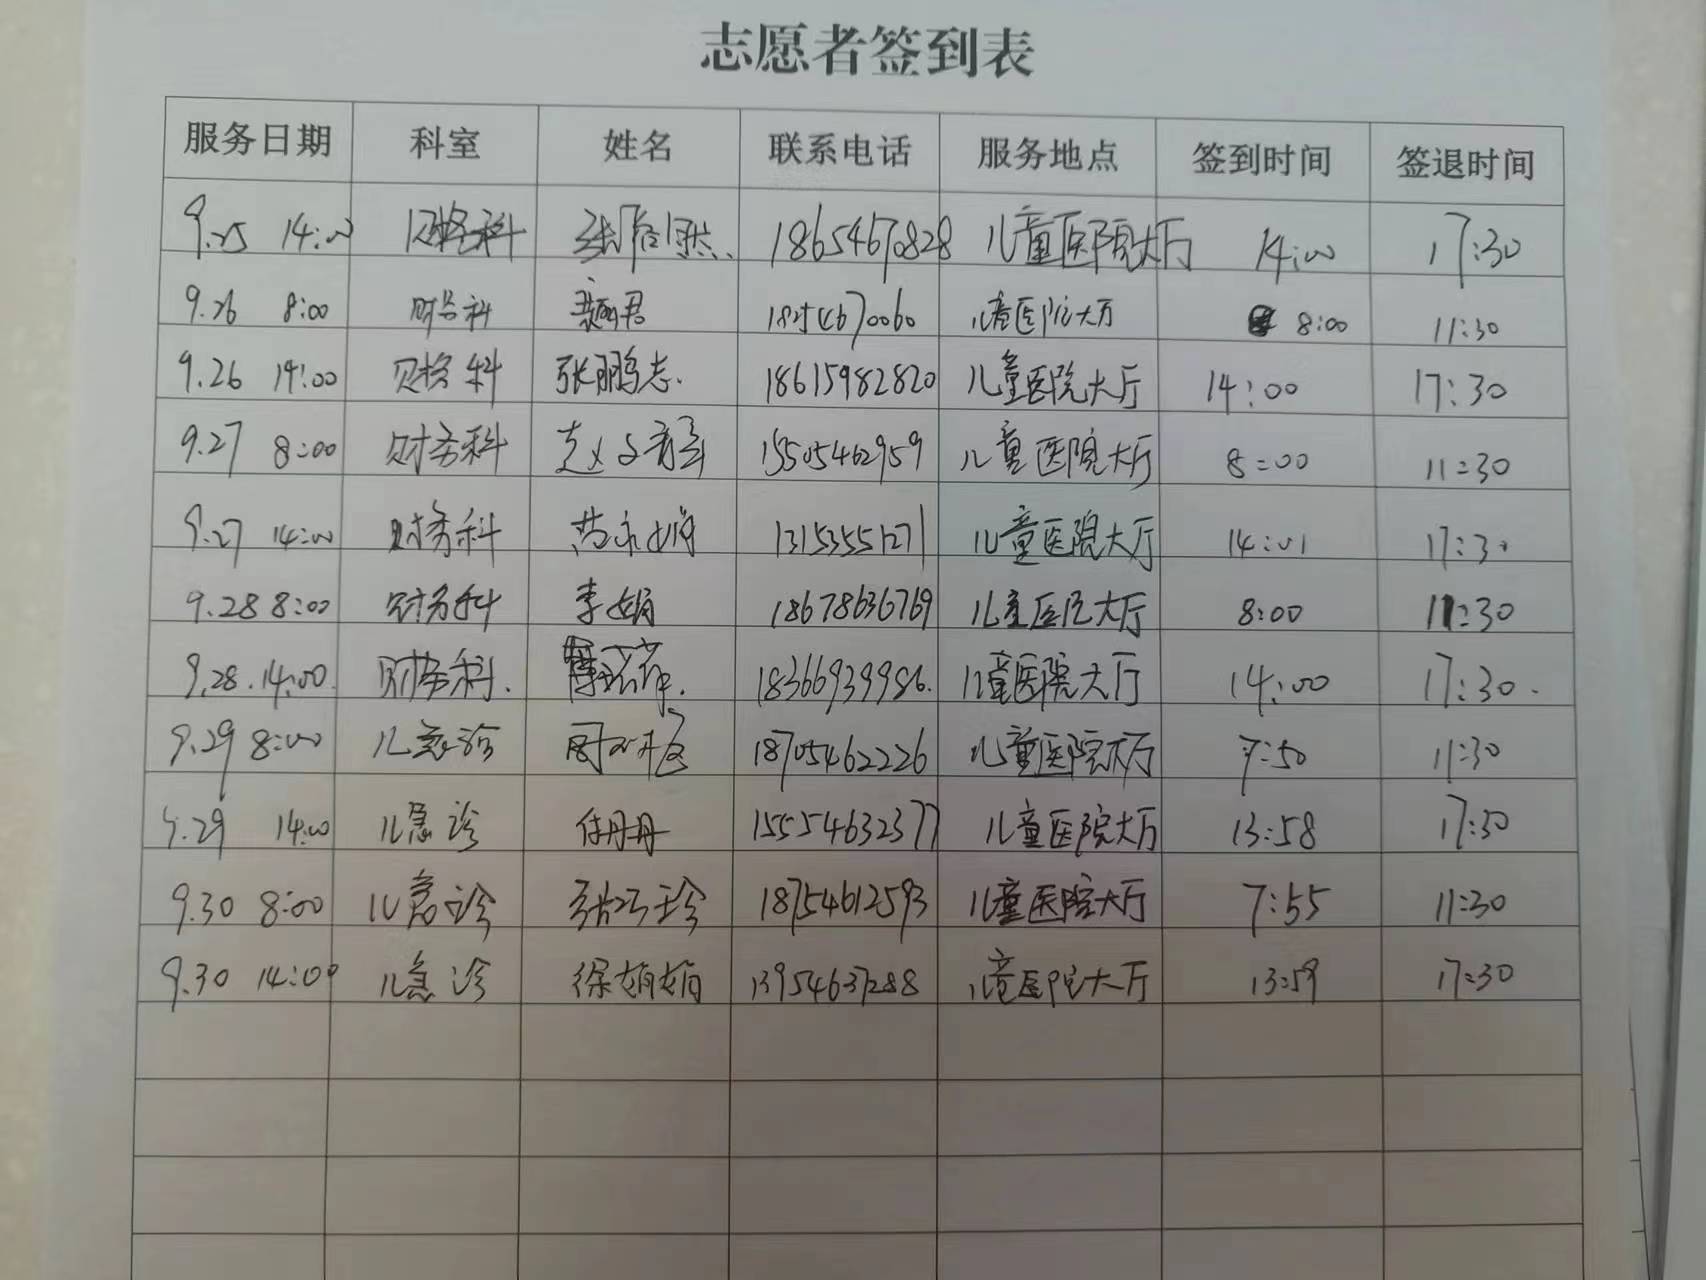 志愿者签到表
服务日期 科室 姓名 联系电话 服务地点 签到时间 签退时间
9.25 14:00 财务科 18654670828 儿童医院大厅 14:00 17:30
9.26 8:00 财务科 18254670060 儿童医院大厅 8:00 11:30
9.26 14:00 财务科 张鹏志. 18615982820 儿童医院大厅 14:00 17:30
9.27 8:00 财务科 15505462959 儿童医院大厅 8:00 11:30
9.27 14:00 财务科 13153551271 儿童医院大厅 14:01 17:30
9.28 8:00 财务科 李娟 18678636769 儿童医院大厅 8:00 11:30
9.28.14:00. 财务科. 18366939986. 儿童医院大厅 14:00 17:30.
9.29 8:00 儿急诊 18705462226 儿童医院大厅 7:50 11:30
9.29 14:00 儿急诊 任丹丹 15554632377 儿童医院大厅 13:58 17:30
9.30 8:00 儿急诊 18754612593 儿童医院大厅 7:55 11:30
9.30 14:00 儿急诊 徐娟娟 13954637288 儿童医院大厅 13:59 17:30